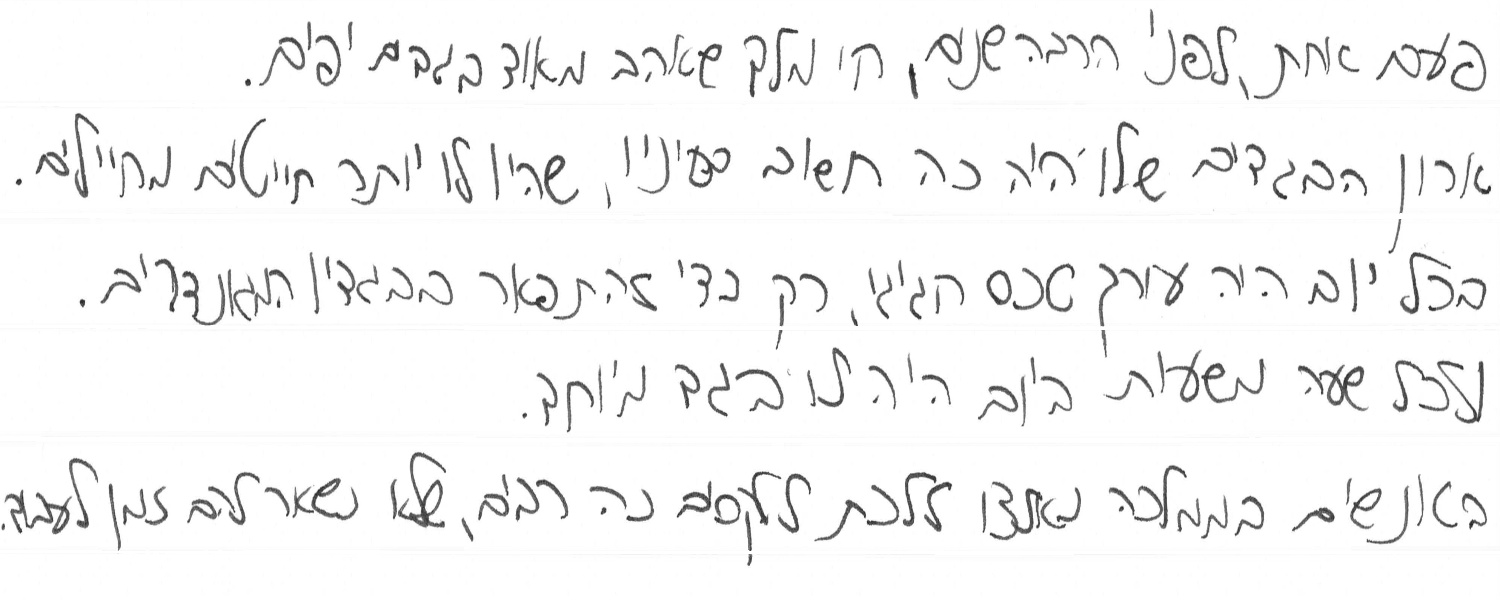 פעם אחת, לפני הרבה שנים, היו מלך שאהב מאוד בגדים יפים.
ארון הבגדים שלו היה כה חשוב בעיניו, שהיו לו יותר חייטים מחיילים.
בכל יום היה עורך טכס חגיגי, רק כדי להתפאר בבגדיו המגונדרים.
ולכל שעה משעות היום היה לו בגד מיוחד.
האנשים בממלכה נאלצו ללכת לטקסים כה רבים, שלא נשאר להם זמן לעבוד.